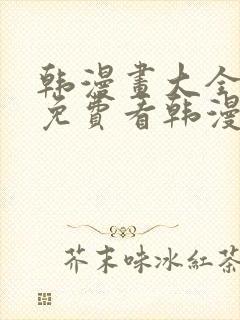 韩漫畫大全
免費看韩漫
芥末味冰紅茶